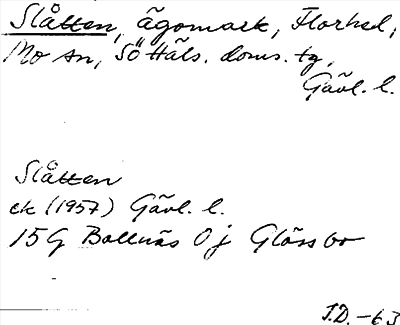 Slåtten, ägomark, Florhed,
Mo sn, SöHäls. doms. tg,
Gävl. l.
Slåtten
ek (1957) Gävl. l.
15G Bollnäs 0j Glössbo
I.D. -63